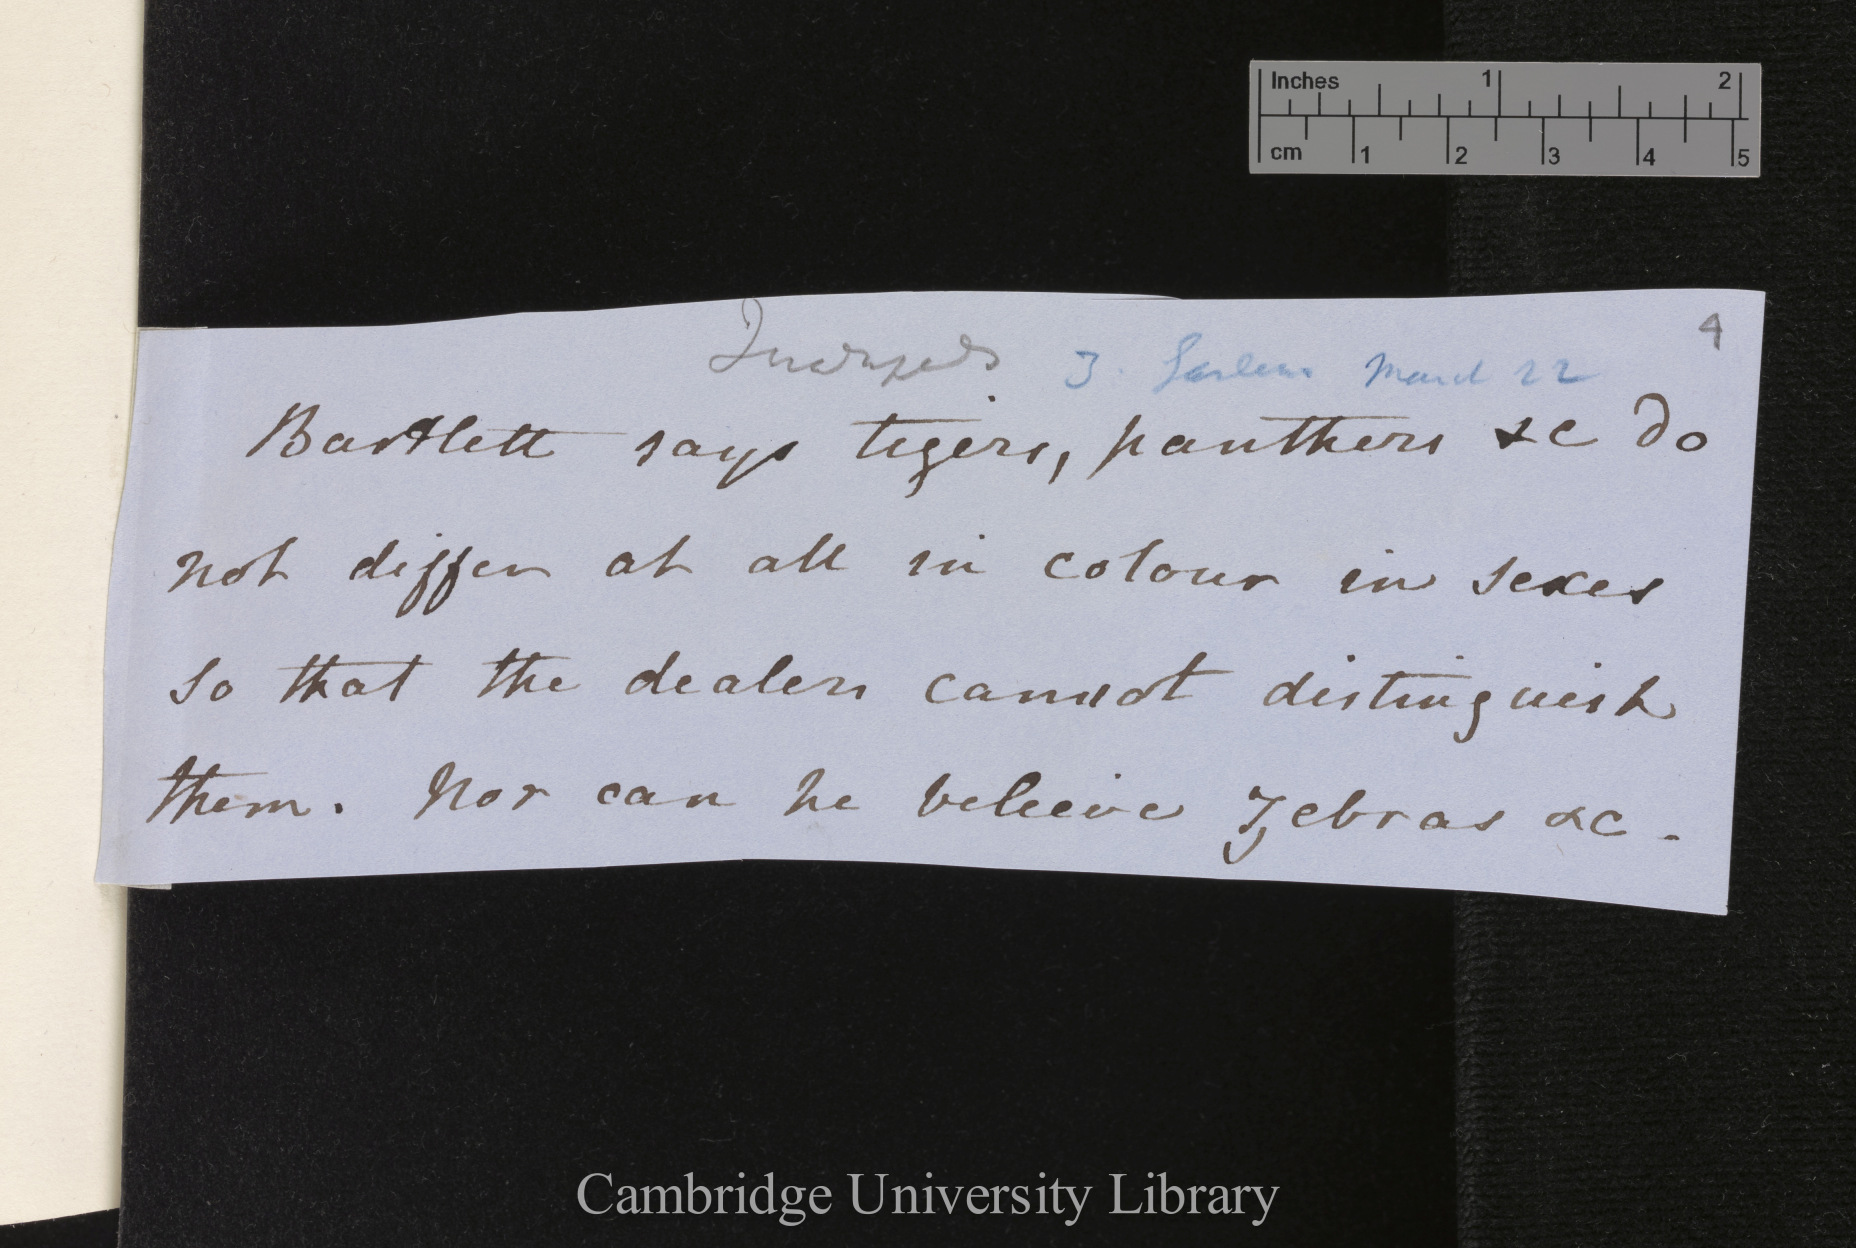 Inches 1 2
cm 1 2 3 4 5
4
Quadrupeds Z. Gardens March 22
Bartlett says tigers, panthers &c do
not differ at all in colour in sexes
so that the dealers cannot distinguish
them. Nor can he beleeive Zebras &c -
Cambridge University Library